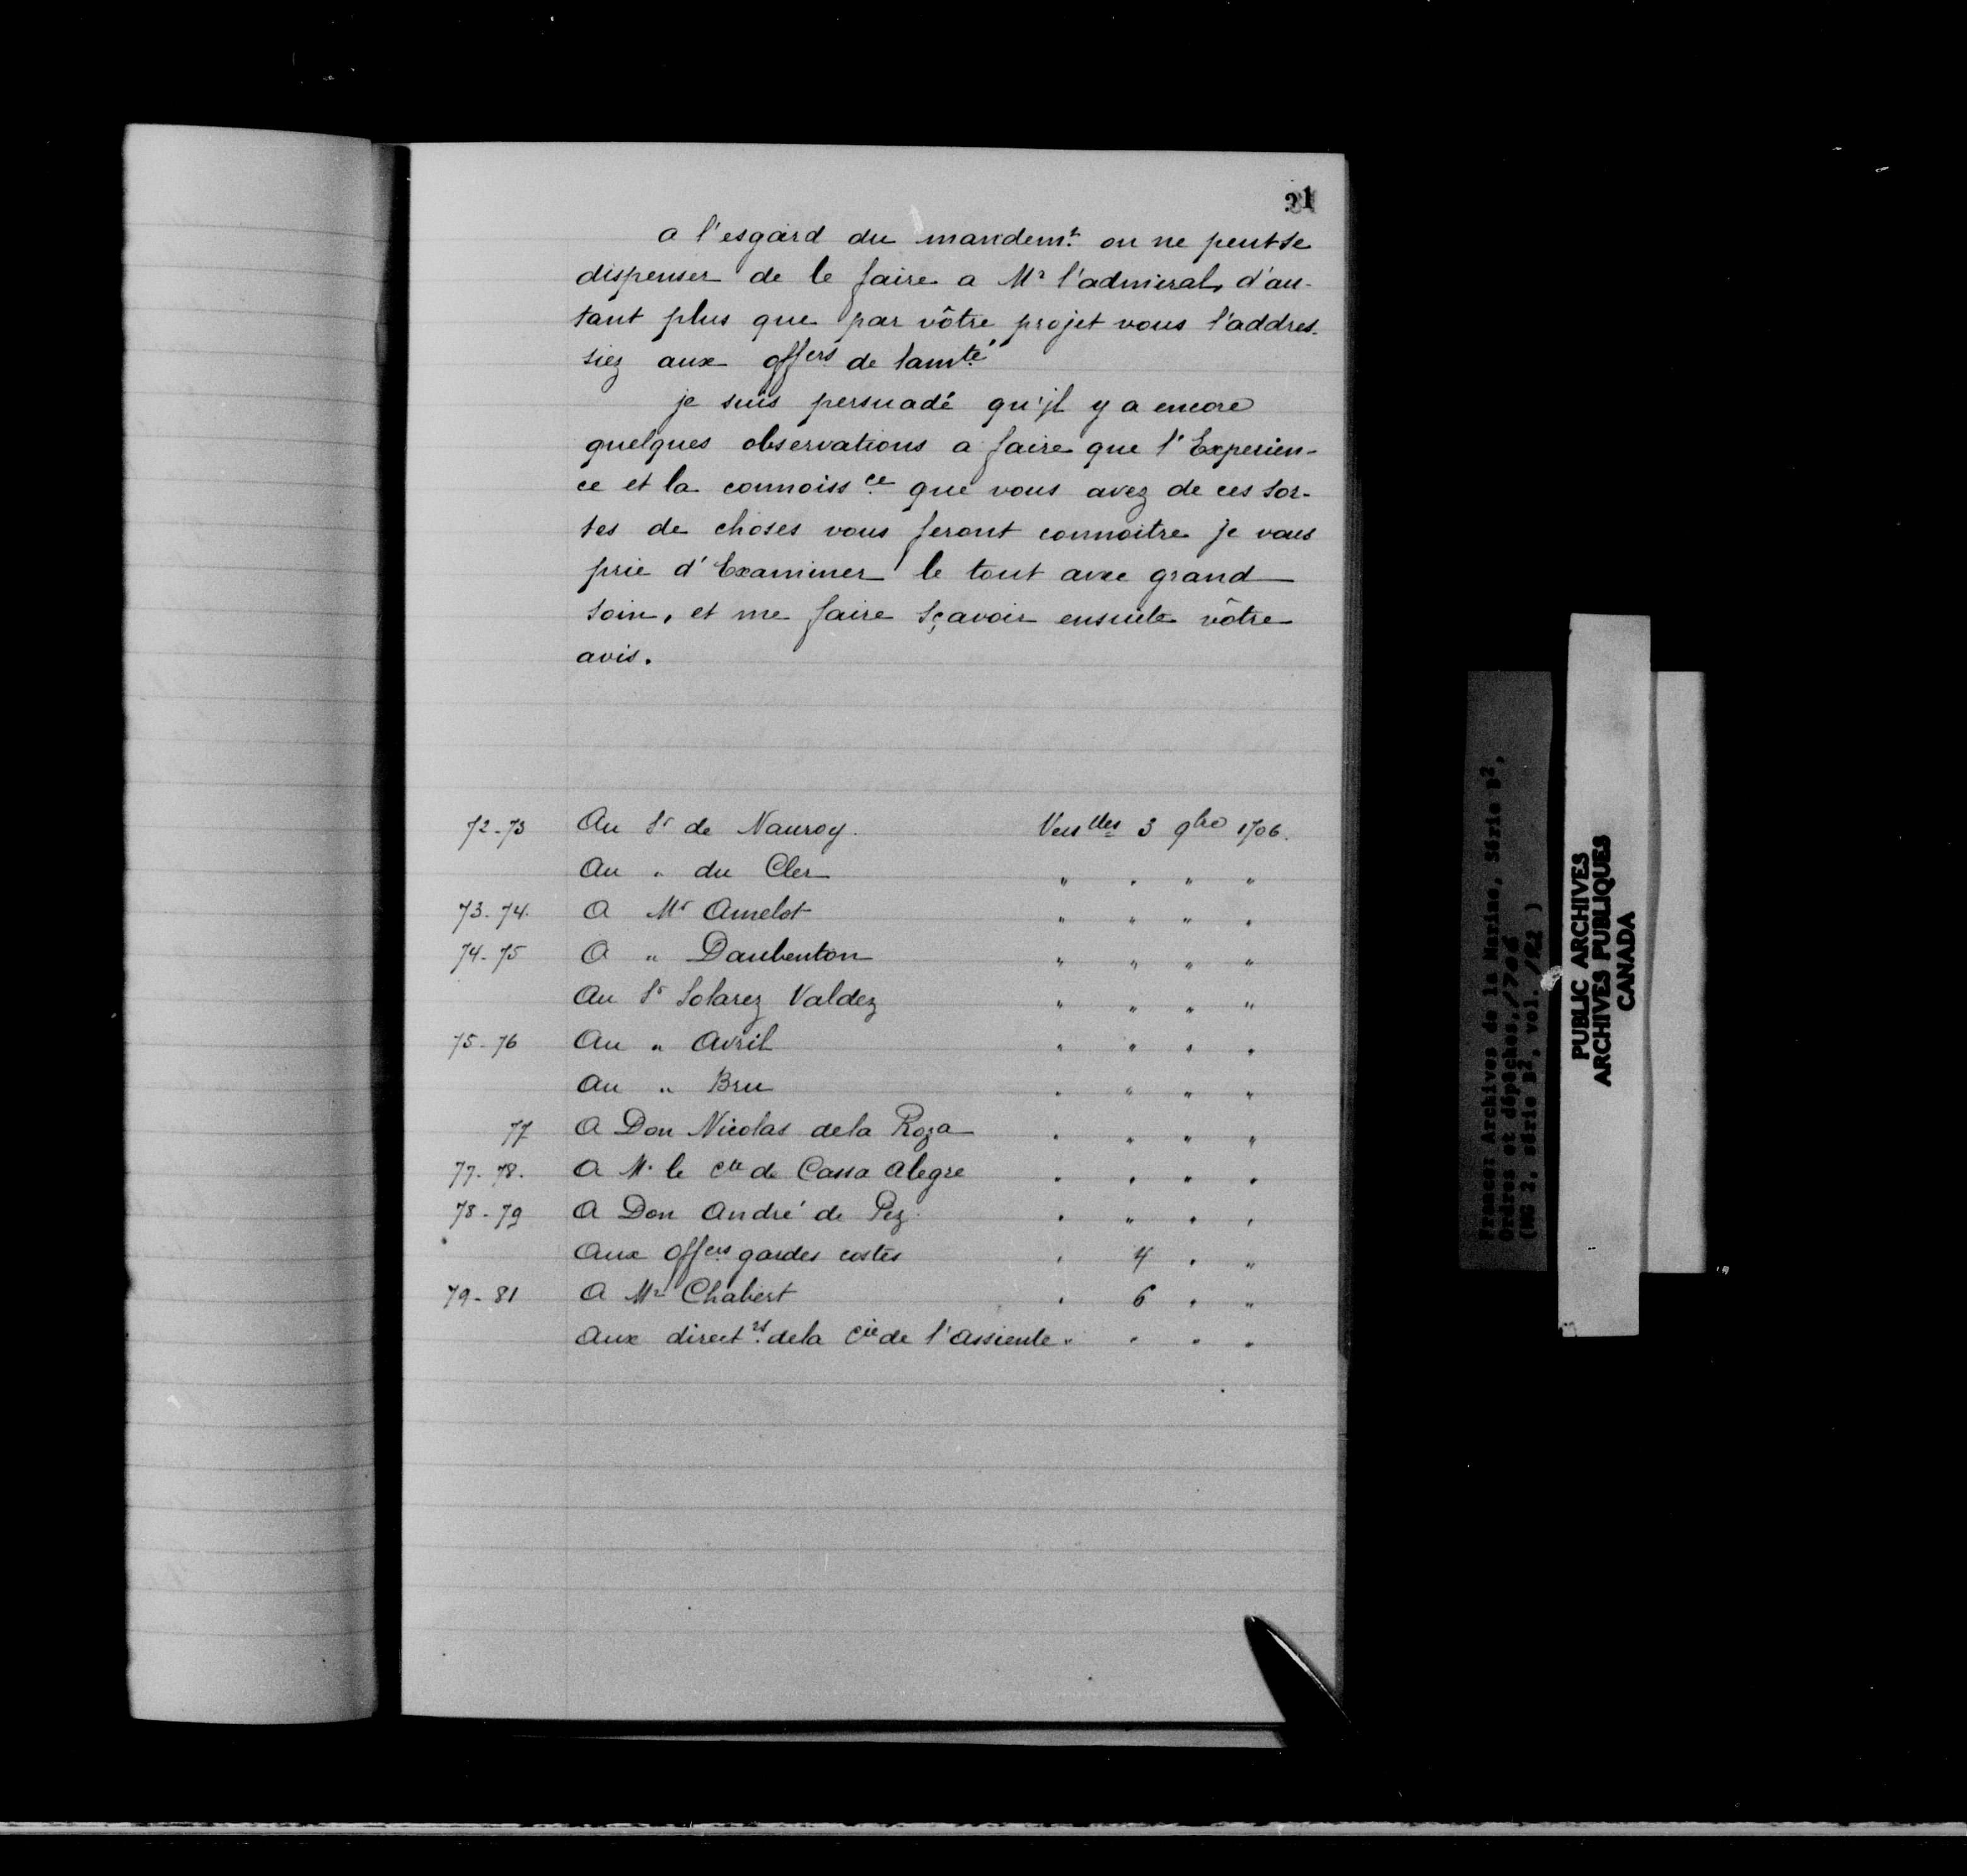 21
a l'esgard du mandemt. on ne peut se
dispenser de le faire a Mr l'admiral, d'au-
tant plus que par vôtre projet vous l'addres-
siez aux offers de lamté
je suis persuadé qu'jl y a encore
quelques observations a faire que l'Experien-
ce et la connoissce que vous avez de ces sor-
tes de choses vous feront connoitre je vous
prie d'Examiner le tout avec grand
soin, et me faire sçavoir ensuite vôtre
avis.
72-73 Au Sr de Nauroy. Verslles 3 9bre 1706.
Au " du Cler " " " "
73-74. A Mr Amelot " " " "
74-75 A " Daubenton " " " "
Au Sr Solarez Valdez " " " "
75-76 Au " Avril " " " "
Au " Bru " " " "
77 A Don Nicolas de la Roza " " " "
77-78. A Mr le Cte de Cassa alegre " " " "
78-79 A Don André de Pez " " " "
Aux offers gardes costes " 4 " "
79-81 A Mr Chabert " 6 " "
Aux directrs de la Cie de l'assiente " " " "
France: Archives de la Marine, Série B2,
Ordres et dépêches, 1706
(MG 2, série B2, vol. 192)
PUBLIC ARCHIVES
ARCHIVES PUBLIQUES
CANADA